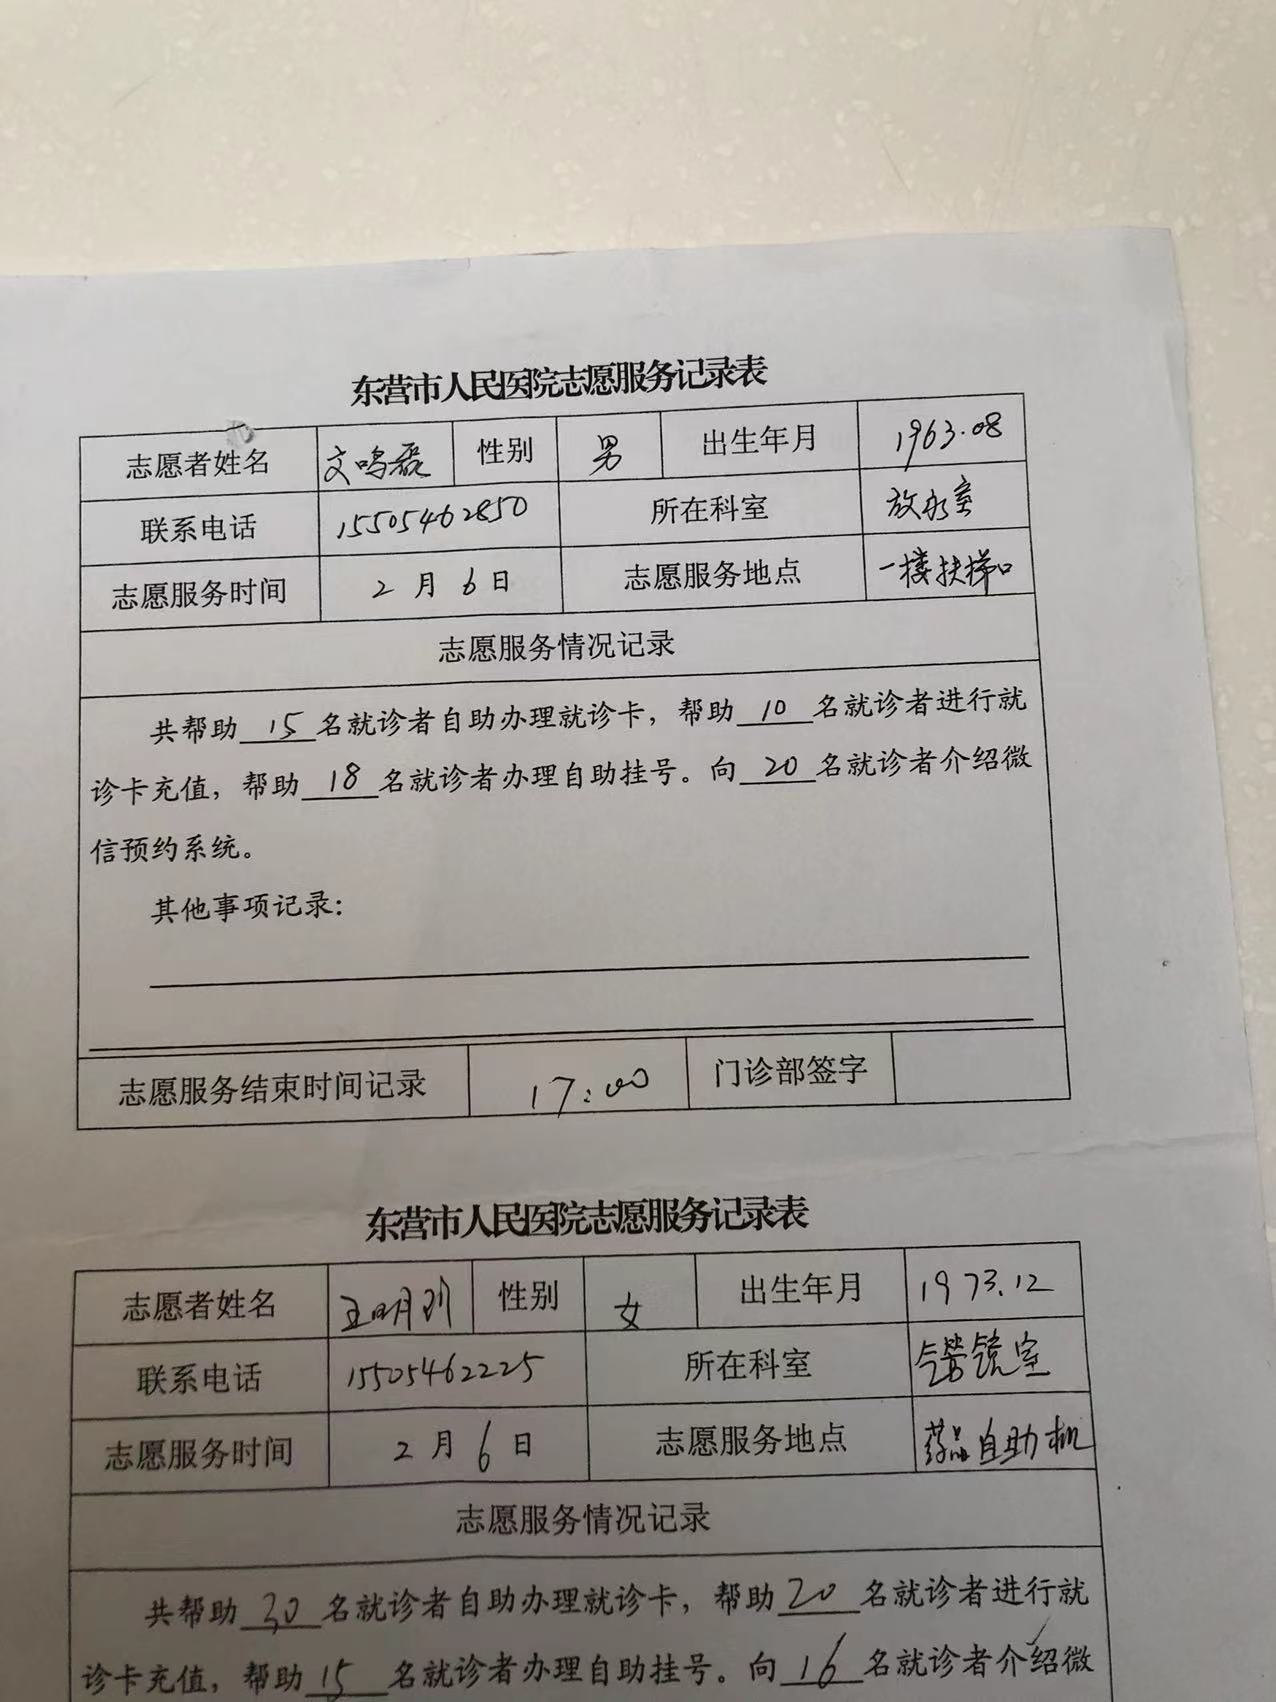 东营市人民医院志愿服务记录表
志愿者姓名 文鸣磊 性别 男 出生年月 1963.08
联系电话 15505462850 所在科室 放水室
志愿服务时间 2月6日 志愿服务地点 一楼扶梯口
志愿服务情况记录
共帮助15名就诊者自助办理就诊卡，帮助10名就诊者进行就
诊卡充值，帮助18名就诊者办理自助挂号。向20名就诊者介绍微
信预约系统。
其他事项记录：
志愿服务结束时间记录 17:00 门诊部签字
东营市人民医院志愿服务记录表
志愿者姓名 性别 女 出生年月 1973.12
联系电话 15505462225 所在科室 镜室
志愿服务时间 2月6日 志愿服务地点 药品自助机
志愿服务情况记录
共帮助30名就诊者自助办理就诊卡，帮助20名就诊者进行就
诊卡充值，帮助15名就诊者办理自助挂号。向16名就诊者介绍微